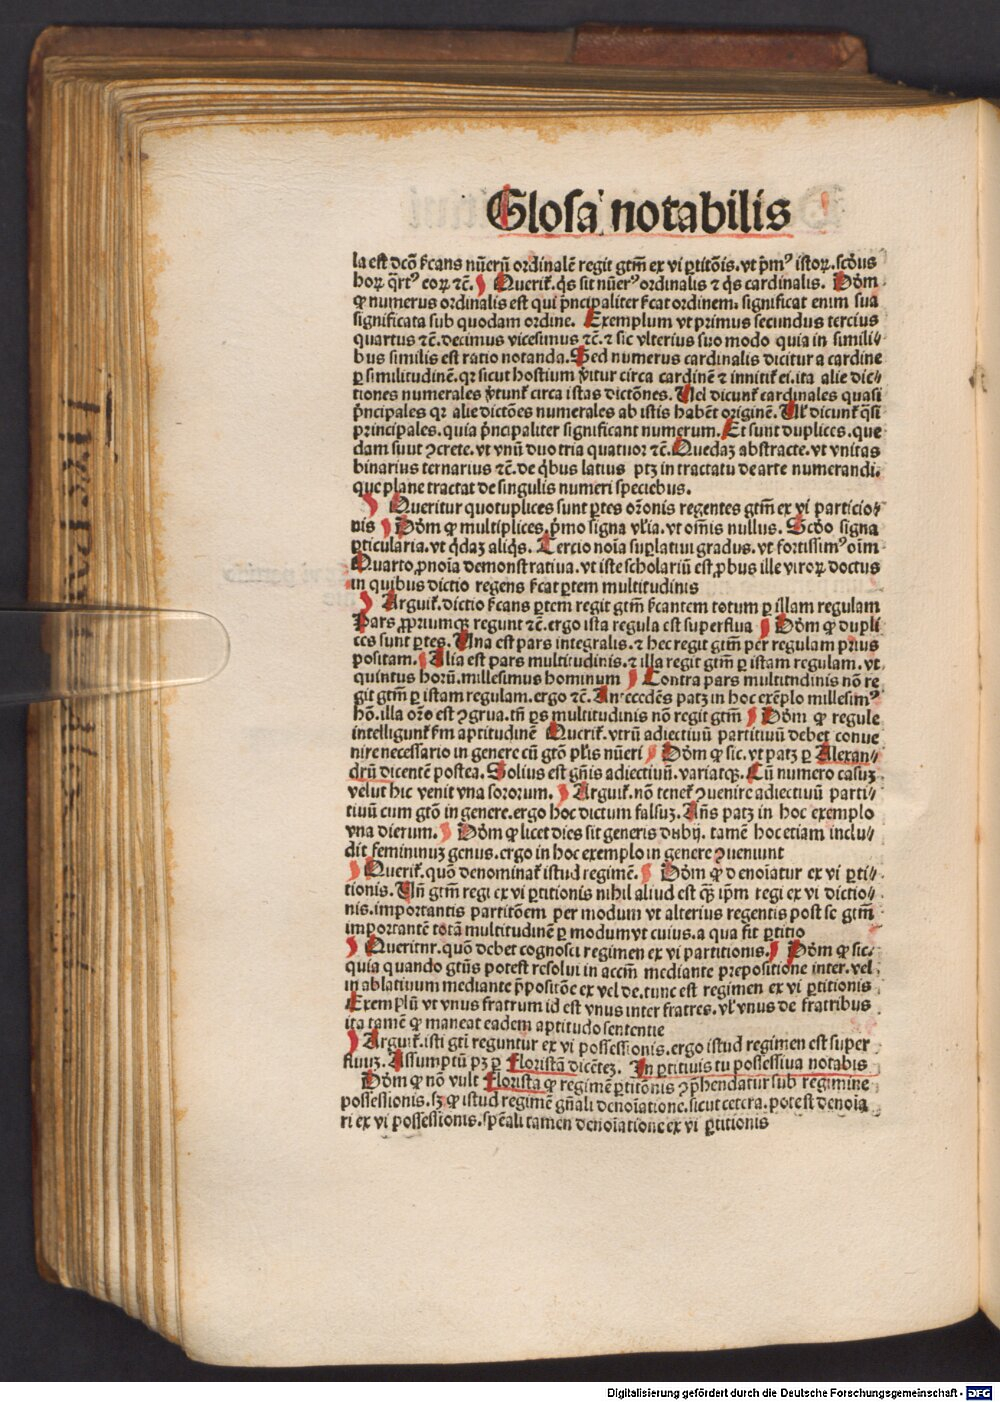 Glosa notabilis
la est dcō ſ̄cans nūerū ordinalē regit gtm̄ ex vi ꝑtitōis. vt p̄mꝰ istoꝝ. scd̓us
hoꝝ q̄rtꝰ eoꝝ ⁊c̄. Querit̄. q̇s sit nūerꝰ ordinalis ⁊ q̇s cardinalis. Dōm
ꝙ numerus ordinalis est qui p̄ncipaliter ſ̄cat ordinem. significat enim sua
significata sub quodam ordine. Exemplum vt primus secundus tercius
quartus ⁊c̄. decimus vicesimus ⁊c̄. ⁊ sic vlterius suo modo quia in simili-
bus similis est ratio notanda. Sed numerus cardinalis dicitur a cardine
ꝑ similitudinē. qꝛ sicut hostium v̄titur circa cardinē ⁊ innitit̄ ei. ita alie dic-
tiones numerales v̄tunt̄ circa istas dictōnes. Uel dicunt̄ cardinales quasi
p̄ncipales qꝛ alie dictōes numerales ab istis habēt originē. Ul̓ dicunt̄ q̄si
principales. quia p̄ncipaliter significant numerum. Et sunt duplices. que
dam suut ꝯcrete. vt vnū duo tria quatuor ⁊c̄. Quedaꝫ abstracte. vt vnitas
binarius ternarius ⁊c̄. de q̇bus latius ptꝫ in tractatu de arte numerandi.
que plane tractat de singulis numeri speciebus.
Queritur quotuplices sunt ꝑtes or̄onis regentes gtm̄ ex vi particio-
nis Dōm ꝙ multiplices. p̄mo signa vl̓ia. vt om̄is nullus. Scd̓o signa
ꝑticularia. vt q̇daꝫ aliq̇s. Tercio noīa suꝑlatiui gradus. vt fortissimꝰ oīm
Quarto ꝓnoīa demonstratiua. vt iste scholariū est ꝓbus ille viroꝝ doctus
in quibus dictio regens ſ̄cat ꝑtem multitudinis
Arguit̄. dictio ſ̄cans ꝑtem regit gtm̄ ſ̄cantem totum ꝑ illam regulam
Pars ꝓpriumqꝫ regunt ⁊c̄. ergo ista regula est superflua Dōm ꝙ dupli
ces sunt ꝑtes. Una est pars integralis. ⁊ hec regit gtm̄ per regulam prius
positam. Alia est pars multitudinis. ⁊ illa regit gtm̄ ꝑ istam regulam. vt
quintus horū. millesimus hominum Contra pars multitndinis nō re
git gtm̄ ꝑ istam regulam. ergo ⁊c̄. An̄ecedēs patꝫ in hoc exēplo millesimꝰ
hō. illa or̄o est ꝯgrua. tn̄ ꝑs multitudinis nō regit gtm̄ Dōm ꝙ regule
intelligunt̄ ſm aptitudinē Querit̄. vtrū adiectiuū partitiuū debet conue
nire necessario in genere cū gtō pl̓is nūeri Dōm ꝙ sic. vt patꝫ ꝑ Alexan-
drū dicentē postea. Solius est gn̄is adiectiuū. variatqꝫ. Cū numero casuꝫ
velut hic venit vna sororum. Arguit̄. nō tenet̄ ꝯuenire adiectiuū parti-
tiuū cum gtō in genere. ergo hoc dictum falsuꝫ. An̄s patꝫ in hoc exemplo
vna dierum. Dōm ꝙ licet dies sit generis dubij. tamē hoc etiam inclu-
dit femininuꝫ genus. ergo in hoc exemplo in genere ꝯueniunt
Querit̄. quō denominat̄ istud regimē. Dōm ꝙ denoīatur ex vi ꝑti-
tionis. Un̄ gtm̄ regi ex vi ꝑtitionis nihil aliud est qꝫ̄ ip̄m regi ex vi dictio-
nis. importantis partitōem per modum vt alterius regentis post se gtm̄
importantē totā multitudinē ꝑ modum vt cuius. a qua fit ꝑtitio
Queritnr. quō debet cognosci regimen ex vi partitionis. Dōm ꝙ sic.
quia quando gtn̄s potest resolui in accm̄ mediante prepositione inter. vel
in ablatiuum mediante p̄positōe ex vel de. tunc est regimen ex vi ꝑtitionis
Exemplū vt vnus fratrum id est vnus inter fratres. vl̓ vnus de fratribus
ita tamē ꝙ maneat eadem aptitudo sententie
Arguit̄. isti gti̅ reguntur ex vi possessionis. ergo istud regimen est super
fluuꝫ. Assumptū pꝫ ꝑ Floristā dicēteꝫ. In ꝑtitiuis tu possessiua notabis
Dōm ꝙ nō vult Florista ꝙ regimē ꝑtitōnis ꝯp̄hendatur sub regimine
possessionis. sꝫ ꝙ istud regimē gn̄ali denoīatione. sicut cetera. potest denoīa
ri ex vi possessionis. spēali tamen denoīatione ex vi ꝑtitionis
Digitalisierung gefördert durch die Deutsche Forschungsgemeinschaft - DFG